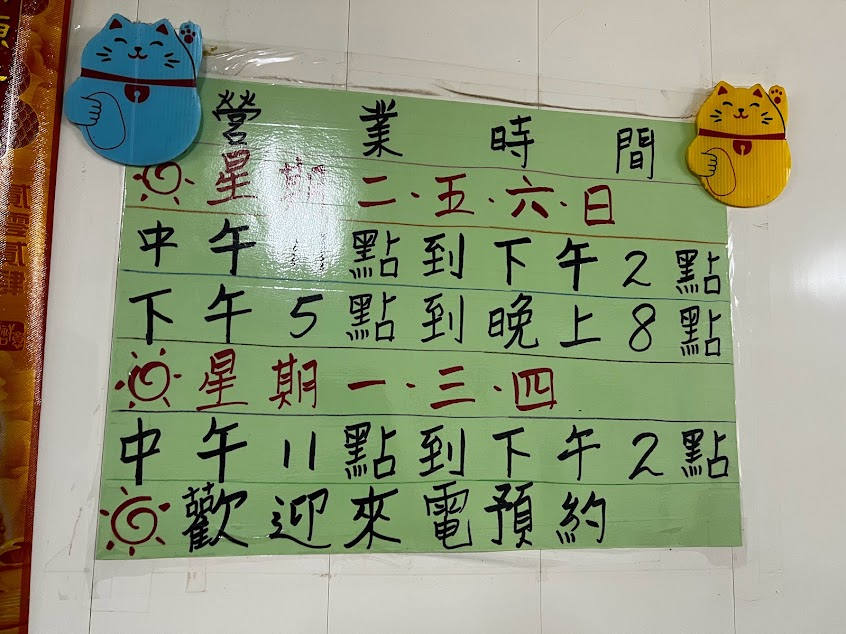 營業時間
星期二·五·六·日
中午11點到下午2點
下午5點到晚上8點
星期一·三·四
中午11點到下午2點
歡迎來電預約
貳零貳肆